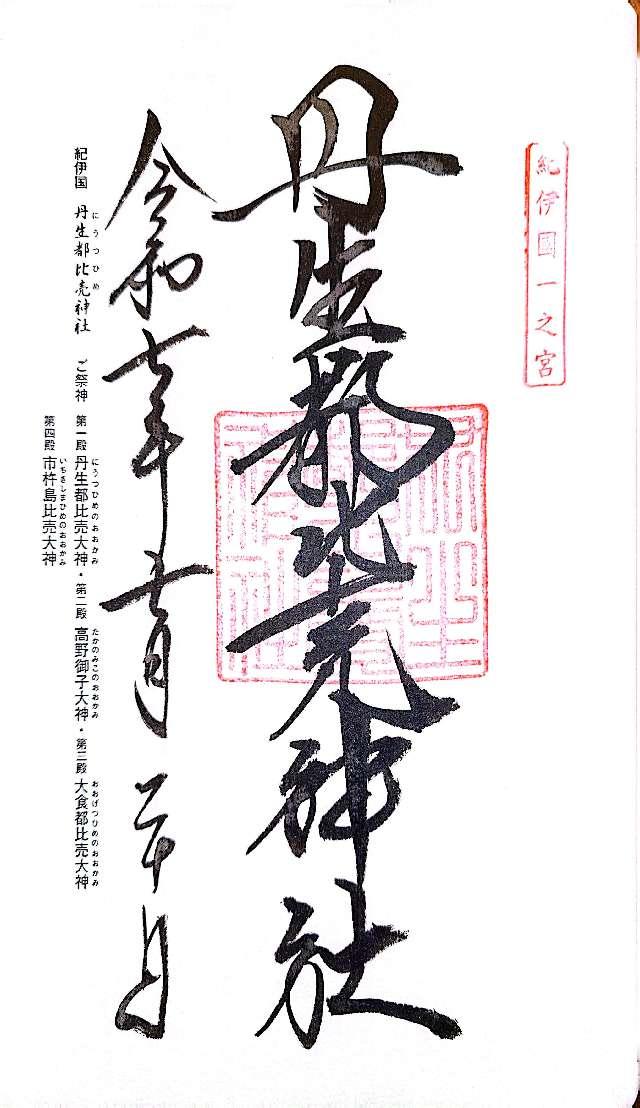 紀伊國一之宮
丹生都比売神社
令和七年五月二十日
にうつひめ　にうつひめのおおかみ　たかのみこのおおかみ　おおげつひめのおおかみ
紀伊国　丹生都比売神社　ご祭神　第一殿 丹生都比売大神・第二殿 高野御子大神・第三殿 大食都比売大神
いちきしまひめのおおかみ
第四殿 市杵島比売大神